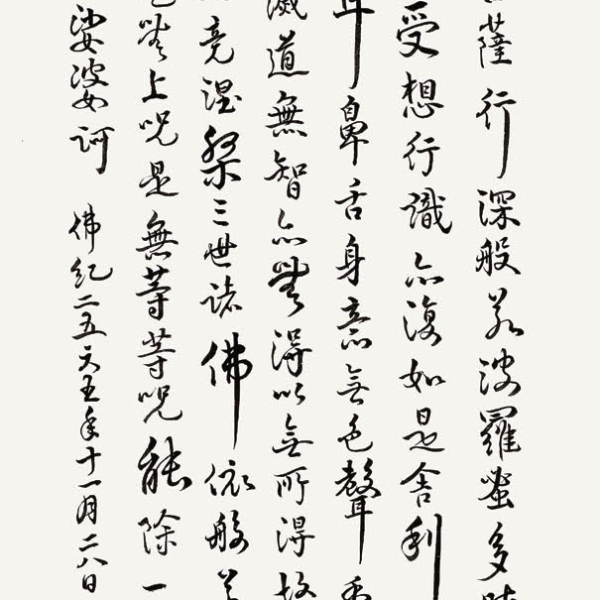 薩行深般若波羅蜜多時
受想行識亦復如是舍利
耳鼻舌身意無色聲香
滅道無智亦無得以無所得故
竟涅槃三世諸佛依般若
上咒是無等等咒能除一
娑婆訶 佛紀二五六五年十一月二八日